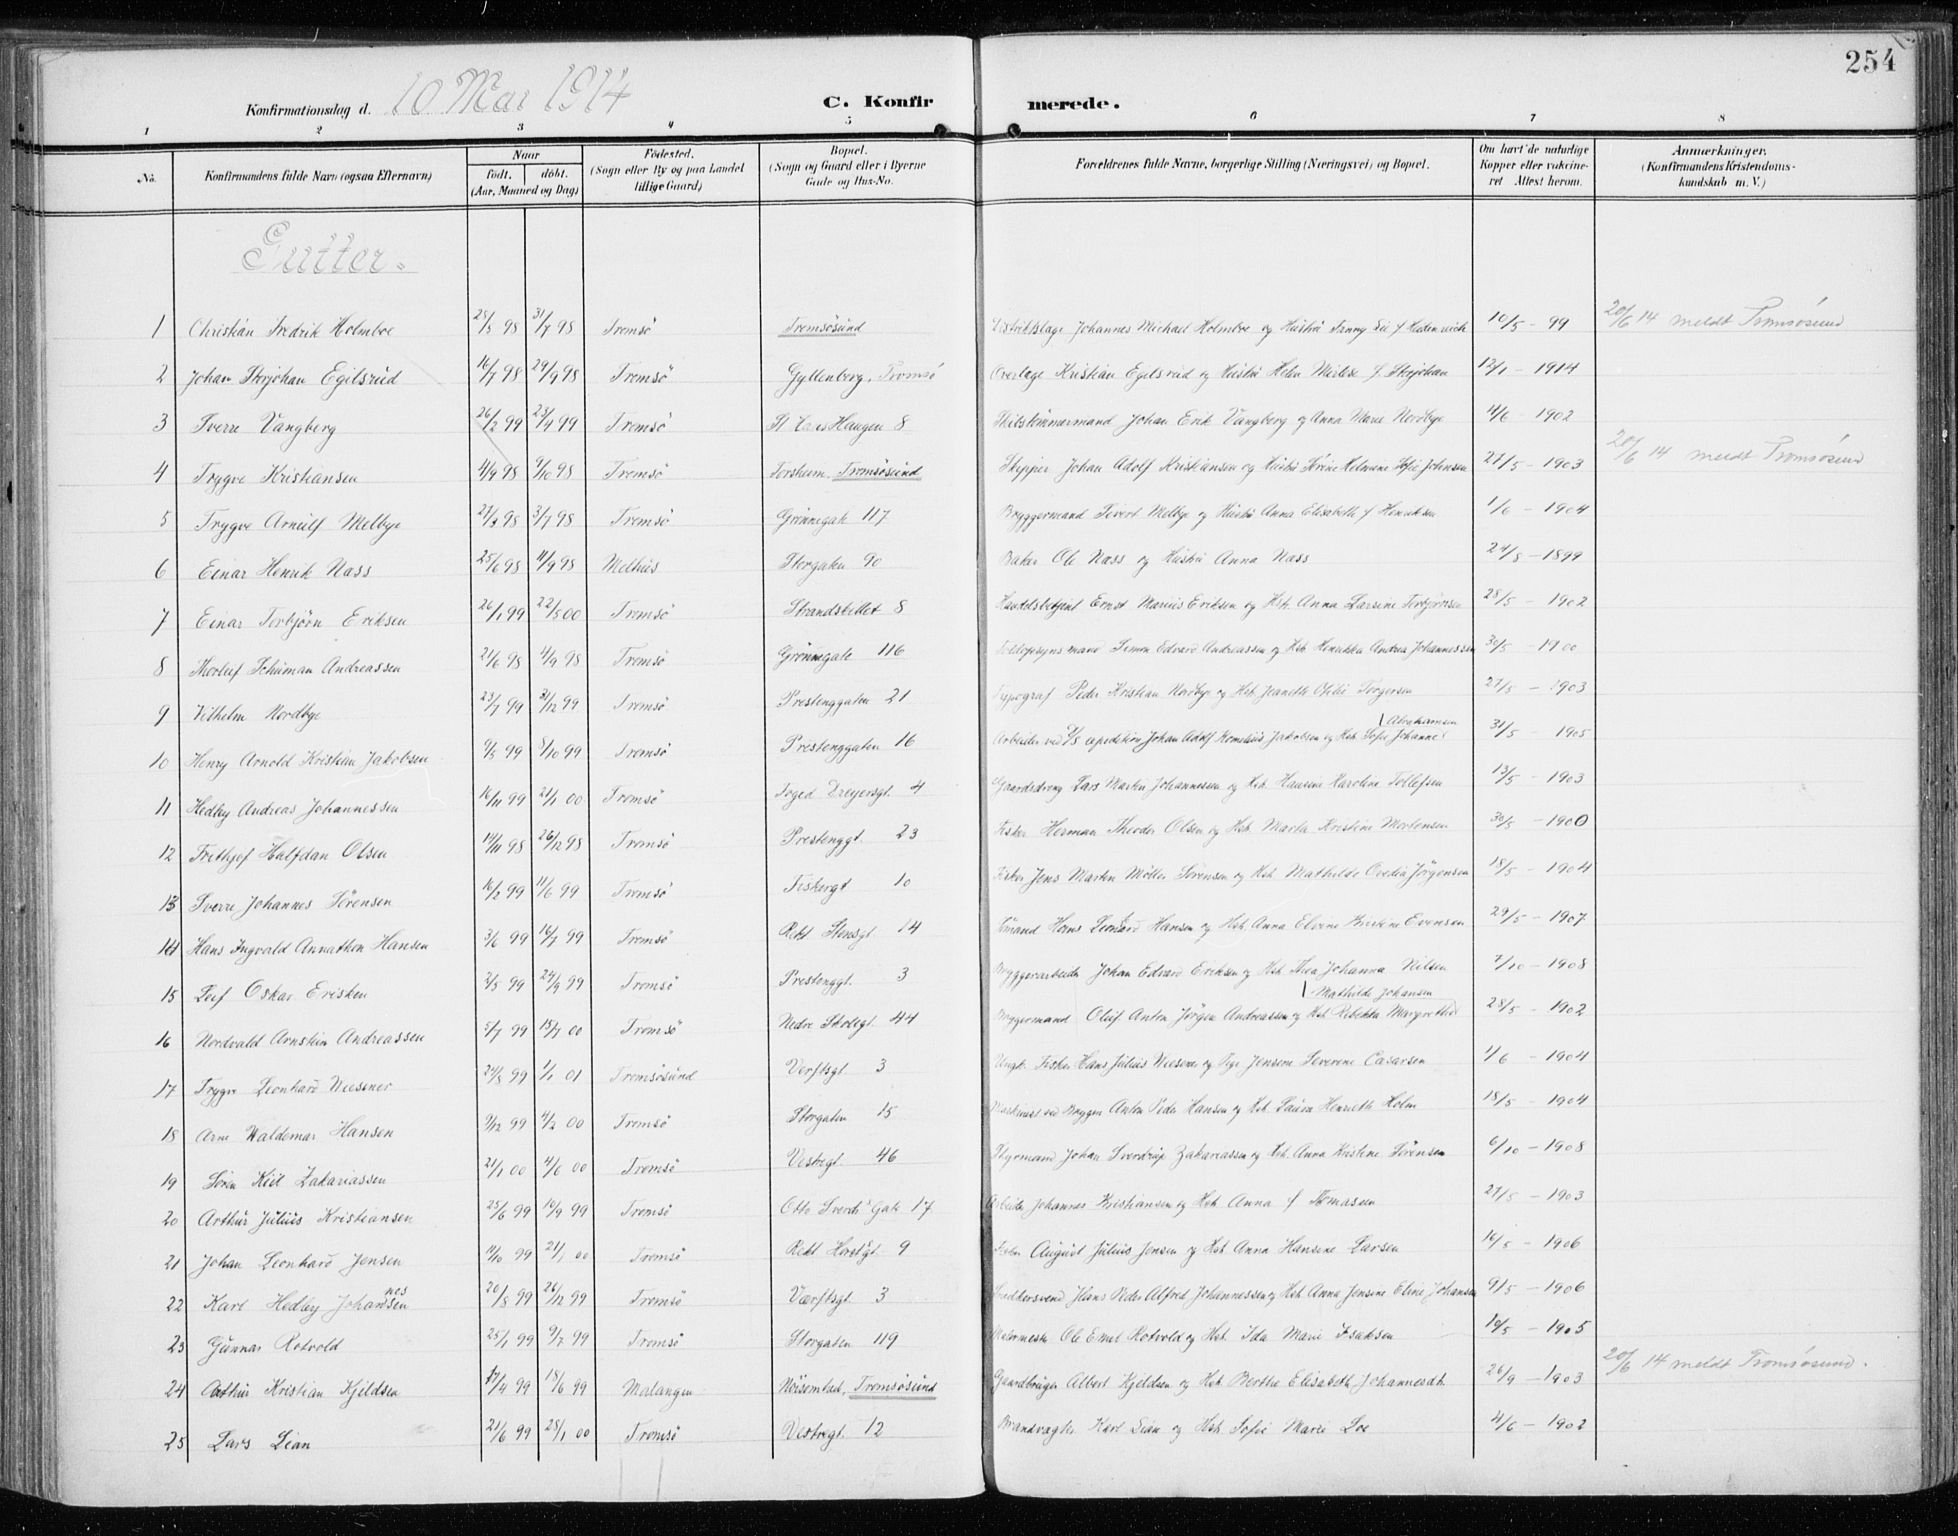 254
Konfirmationsdag d. 10 Mai 1914 C. Konfirmerede.
1 2 3 4 5 6 7 8
No. Konfirmandens fulde Navn (ogsaa Efternavn) Naar født. døbt. (Aar, Maaned og Dag) Fødested. (Sogn eller By og paa Landet tillige Gaard) Bopæl. (Sogn og Gaard eller i Byerne Gade og Hus-No. Forældrenes fulde Navne, borgerlige Stilling (Næringsvei) og Bopæl. Om havt de naturlige Kopper eller vaccineret Attest herom. Anmærkninger. (Konfirmandens Kristendomskundskab m. V.)
Gutter.
1 Christian Fredrik Holmboe 28/5 98 31/7 98 Tromsö Tromsösund Distriktslæge Johannes Michael Holmboe og Hustru Fanny f Heidenreich 10/5 - 99 20/6 14 meldt Tromsøsund
2 Johan Storjohan Egilsrud 16/7 98 29/9 98 Tromsö Gyllenborg, Tromsö Overlæge Kristian Egilsrud og Hustru Helen f. Storjohan 12/1 - 1914
3 Sverre Vangberg 26/2 99 23/4 99 Tromsö St Hans Haugen 8 Skibstömmermand Johan Erik Vangberg og Anna Marie Nordbye 4/6 - 1902
4 Trygve Kristiansen 4/9 98 9/10 98 Tromsö Forsheim, Tromsösund Skipper Johan Adolf Kristiansen og Hustru Sofie Johnsen 27/5 - 1903 20/6 14 meldt Tromsøsund
5 Trygve Arnulf Melbye 27/3 98 3/7 98 Tromsö Grönnegate 117 Bryggermand Sivert Melbye og Hustru Anna Elisabeth f Henriksen 1/6 - 1904
6 Einar Henrik Næss 25/6 98 11/9 98 Melhus Storgaten 90 Baker Ole Næss og Hustru Anna Næss 24/5 - 1899
7 Einar Torbjörn Eriksen 26/1 99 22/5 00 Tromsö Strandskillet 8 Handelsbetjent Ernst Marius Eriksen og Hst. Anna Larsine Torbjörnsen 28/5 - 1902
8 Thorleif Schuman Andreassen 21/6 98 4/9 98 Tromsö Grönnegate 116 Toldopsynsmand Simon Edvard Andreassen og Hst. Henrikka Andrea Johannessen 30/5 - 1900
9 Vilhelm Nordbye 23/7 99 31/12 99 Tromsö Prestenggaten 21 Typograf Peder Kristian Nordbye og Hst. Jeanette Ofelie Torgersen 27/5 - 1903
10 Henry Arnold Kristian Jakobsen 9/5 99 8/10 99 Tromsö Prestenggaten 16 Arbeider ved D/S expedition Johan Adolf Kornelius Jakobsen og Hst. Sofie Johanne Abrahamsen 31/5 1905
11 Hedley Andreas Johannessen 16/11 99 21/1 00 Tromsö Foged Dreyersgt. 4 Gaardsdreng Lars Martin Johannessen og Hst. Hansine Karoline Tollefsen 13/5 - 1903
12 Frithjof Halfdan Olsen 14/11 98 26/12 98 Tromsö Prestenggt. 23 Fisker Herman Theodor Olsen og Hst. Marta Kristine Mortensen 30/5 - 1900
13 Sverre Johannes Sörensen 16/2 99 11/6 99 Tromsö Fiskergt 10 Fisker Jens Martin Möller Sörensen og Hst. Mathilde Ovedia Jörgensen 18/5 - 1904
14 Hans Ingvald Annathon Hansen 3/6 99 16/7 99 Tromsö Rekt Stensgt. 14 Sömand Hans Leonard Hansen og Hst. Anna Elvine Kristine Evensen 29/5 - 1907
15 Leif Oskar Eriksen 3/5 99 24/9 99 Tromsö Prestenggt. 3 Bryggerarbeider Johan Edvard Eriksen og Hst. Thea Johanna Nilsen 7/10 - 1908
16 Nordvald Arnstein Andreassen 5/7 99 15/7 00 Tromsö Nedre Skolegt. 44 Bryggermand Oluf Anton Jörgen Andreassen og Hst. Rebekka Margrethe Mathilde Johansen 28/5 - 1902
17 Trygve Leonhard Wiesener 24/5 99 1/1 01 Tromsösund Verftsgt 3 Ungk. Fisker Hans Julius Wiesener og Pige Jensine Severine Casarsen 1/6 - 1904
18 Arne Waldemar Hansen 9/12 99 4/2 00 Tromsö Storgaten 15 Maskinist ved Bryggen Anton Peder Hansen og Hst. Laura Henriette Holm 18/5 - 1904
19 Sören Kiil Zakariassen 21/1 00 4/6 00 Tromsö Vestregt. 46 Styrmand Johan Sverdrup Zakariassen og Hst. Anna Kristine Sörensen 6/10 - 1908
20 Arthur Julius Kristiansen 25/6 99 10/9 99 Tromsö Otto Sverds Gate 17 Arbeider Johannes Kristiansen og Hst. Anna f Thomassen 27/5 - 1903
21 Johan Leonhard Jensen 11/10 99 21/1 00 Tromsö Rekt Horstgt. 9 Fisker August Julius Jensen og Hst. Anna Hansine Larsen 16/5 - 1906
22 Karl Hedley Johannessen 20/8 99 26/12 99 Tromsö Værftsgt. 3 Snedkersvend Hans Peder Alfred Johannessen og Hst. Anna Jensine Eline Johansen 9/5 - 1906
23 Gunnar Rotvold 25/1 99 9/7 99 Tromsö Storgaten 119 Malermester Ole Emil Rotvold og Hst. Ida Marie Isaksen 10/5 - 1905
24 Arthur Kristian Kjeldsen 17/4 99 18/6 99 Malangen Tromsösund Gaardbruger Albert Kjeldsen og Hst. Berthe Elisabeth Johannesdt. 26/9 - 1903 20/6 14 meldt Tromsøsund.
25 Lars Lian 21/6 99 28/1 00 Tromsö Vestregt. 12 Brandvagt Karl Lian og Hst. Sofie Marie Loe 4/6 - 1902